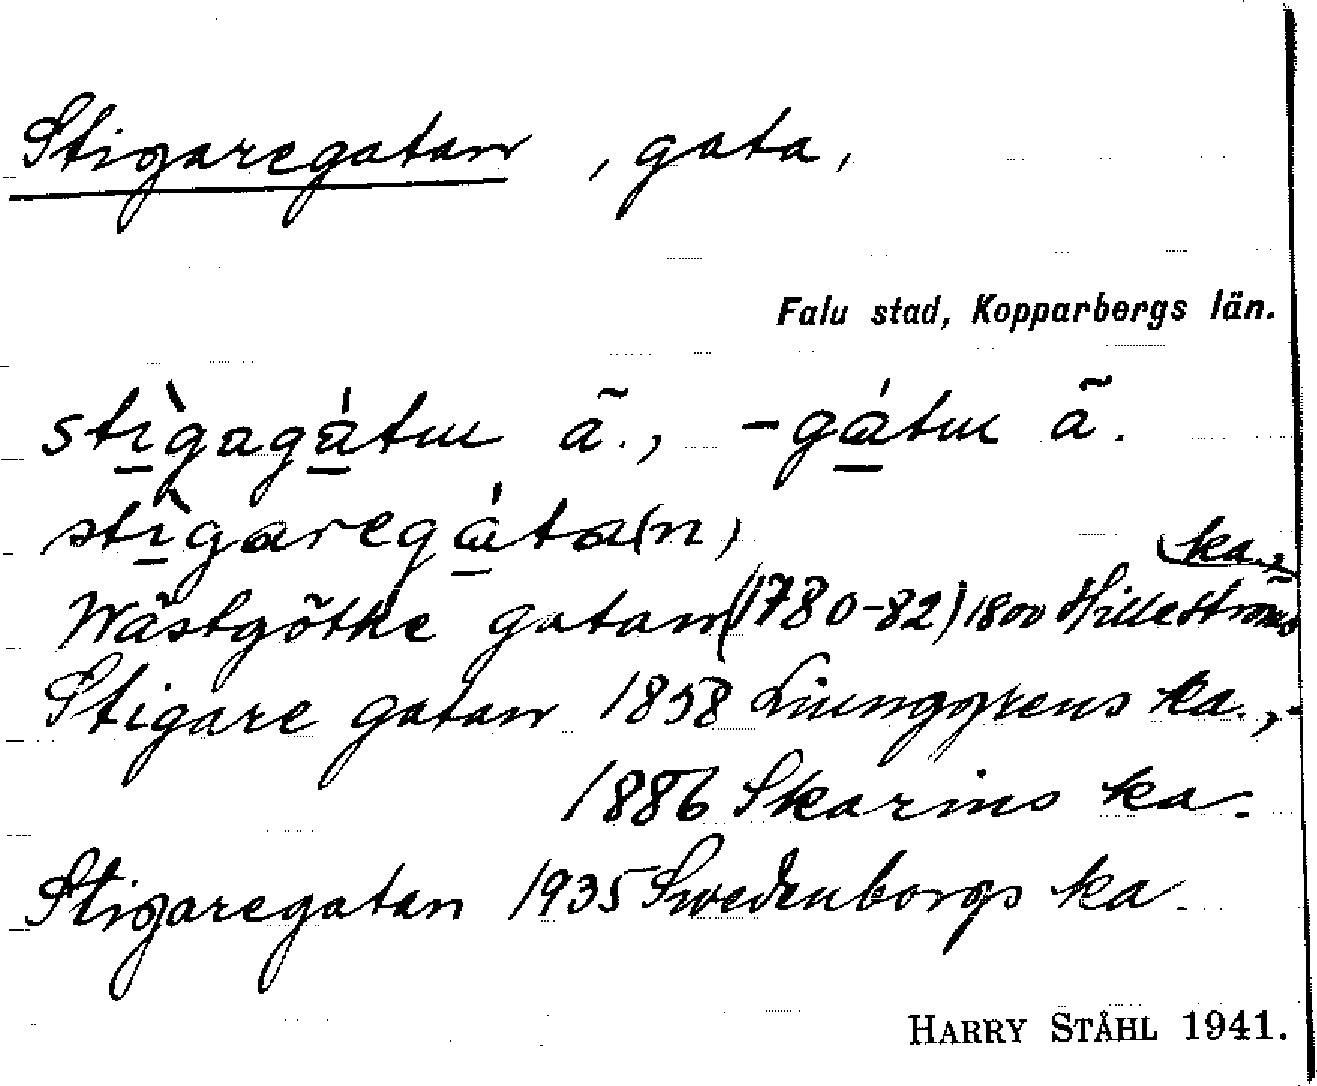 Stigaregatan , gata,
Falu stad, Kopparbergs län.
stìgagátuı ã., -gátuı ã.
stìgaregáta(n)
ka.,
Wästgöthe gatan (1780-82) 1800 Hilleströms
Stigare gatan 1858 Liunggrens ka.,-
1886 Skarins ka.
Stigaregatan 1935 Swedenborgs ka.
HARRY STÅHL 1941.